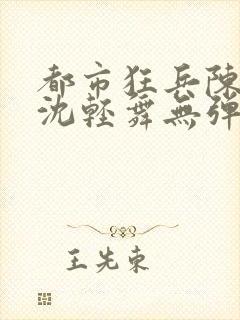 都市狂兵陳
沈輕舞無彈
王先東